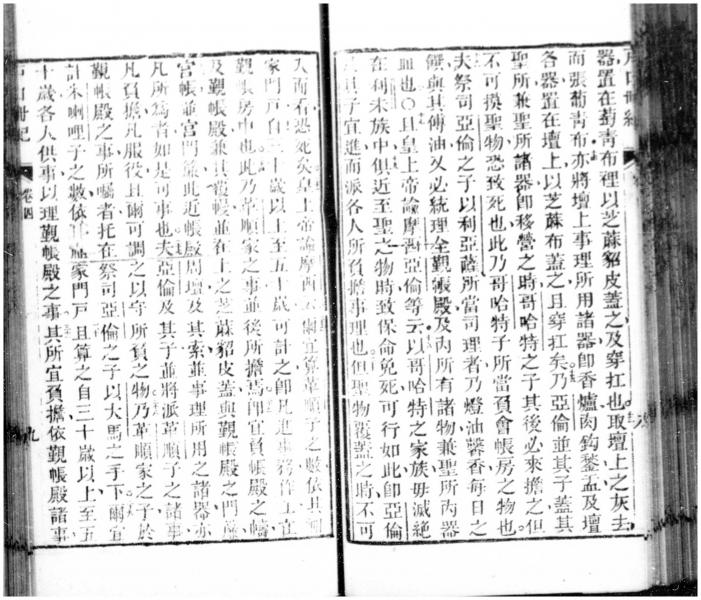 戶口冊紀
器置在葡青布裡以芝蔴貂皮蓋之及穿扛也取壇上之灰去
而張葡青布亦將壇上事理所用諸器卽香爐肉鈎鏊盂及壇
各器置在壇上以芝蔴布蓋之且穿扛矣乃亞倫並其子蓋其
聖所兼聖所諸器卽移營之時哥哈特之子其後必來擔之但
不可摸聖物恐致死也此乃哥哈特子所當負會帳房之物也
夫祭司亞倫之子以利亞薩所當司理者乃燈油馨香每日之
與其傅油又必統理全覲帳殿及內所有諸物兼聖所內器
皿也〇且皇上帝諭摩西亞倫等云以哥哈特之家族毋滅絕
在利未族中俱近至聖之物時致保命免死可行如此卽亞倫
其子宜進而派各人所負擔事理也但聖物覆蓋之時不可
入而看恐死矣皇上帝諭摩西云爾宜算革順子之數依其
家門戶自三十歲以上至五十歲可計之卽凡進事務作工宜
覲帳房中也此乃革順家之事並後所擔焉卽宜負帳殿之幬
及覲帳殿兼其覆帳並在上之芝蔴貂皮蓋與覲帳殿之門簾
宮帳並宮門簾此近帳殿周壇及其索並事理所用之諸器亦
凡所爲者如是可事也夫亞倫及其子並將派革順子之諸事
凡負擔凡服役且爾可調之以守所負之物乃革順家之子於
覲帳殿之事所囑者托在祭司亞倫之子以大馬之手下爾宜
計朱喇哩子之數依 家門戶且算之自三十歲以上至五
十歲各人供事以理覲帳殿之事其所宜負擔依覲帳殿諸事
戶口冊紀 卷四 九